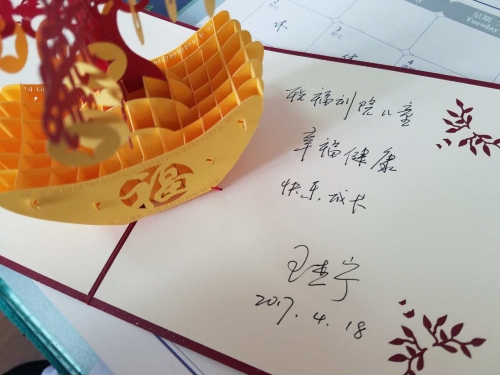 Tuesday
休
福
祝福利院儿童
幸福健康
快乐成长
2017.4.18